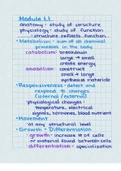 Module 1.1
anatomy - study of structure
physiology - study of function
structure reflects function
- Metabolism - sum of all chemical
processes in the body
catabolism: breakdown
large → small
create energy
anabolism: construct
small → large
synthesize materials
- Responsiveness - detect and
respond to changes
(internal / external)
physiological changes:
temperature, electrical
signals, hormones, blood nutrient
- Movement
at any structural level
- Growth + Differentiation
growth - increase # of cells
or material found between cells
differentiation - specialization